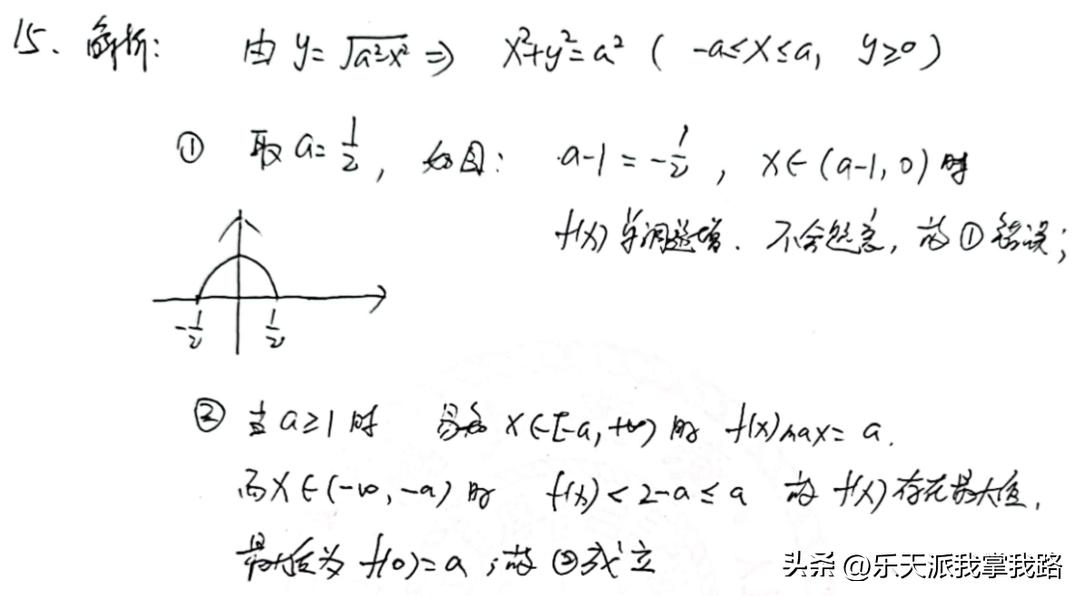 15. 解析: 由 y=√(a²-x²) ⇒ x²+y²=a² ( -a≤x≤a, y≥0 )
① 取 a=1/2, 如图: a-1=-1/2, x∈(a-1,0) 时
f(x) 单调递增. 不合题意, 故①错误;
-1/2 1/2
② 当 a≥1 时 x∈[-a,+∞) 时 f(x)max=a.
而 x∈(-∞,-a) 时 f(x)<2-a≤a 故 f(x) 存在最大值,
最大值为 f(0)=a ; 故②成立
头条 @乐天派我掌我路